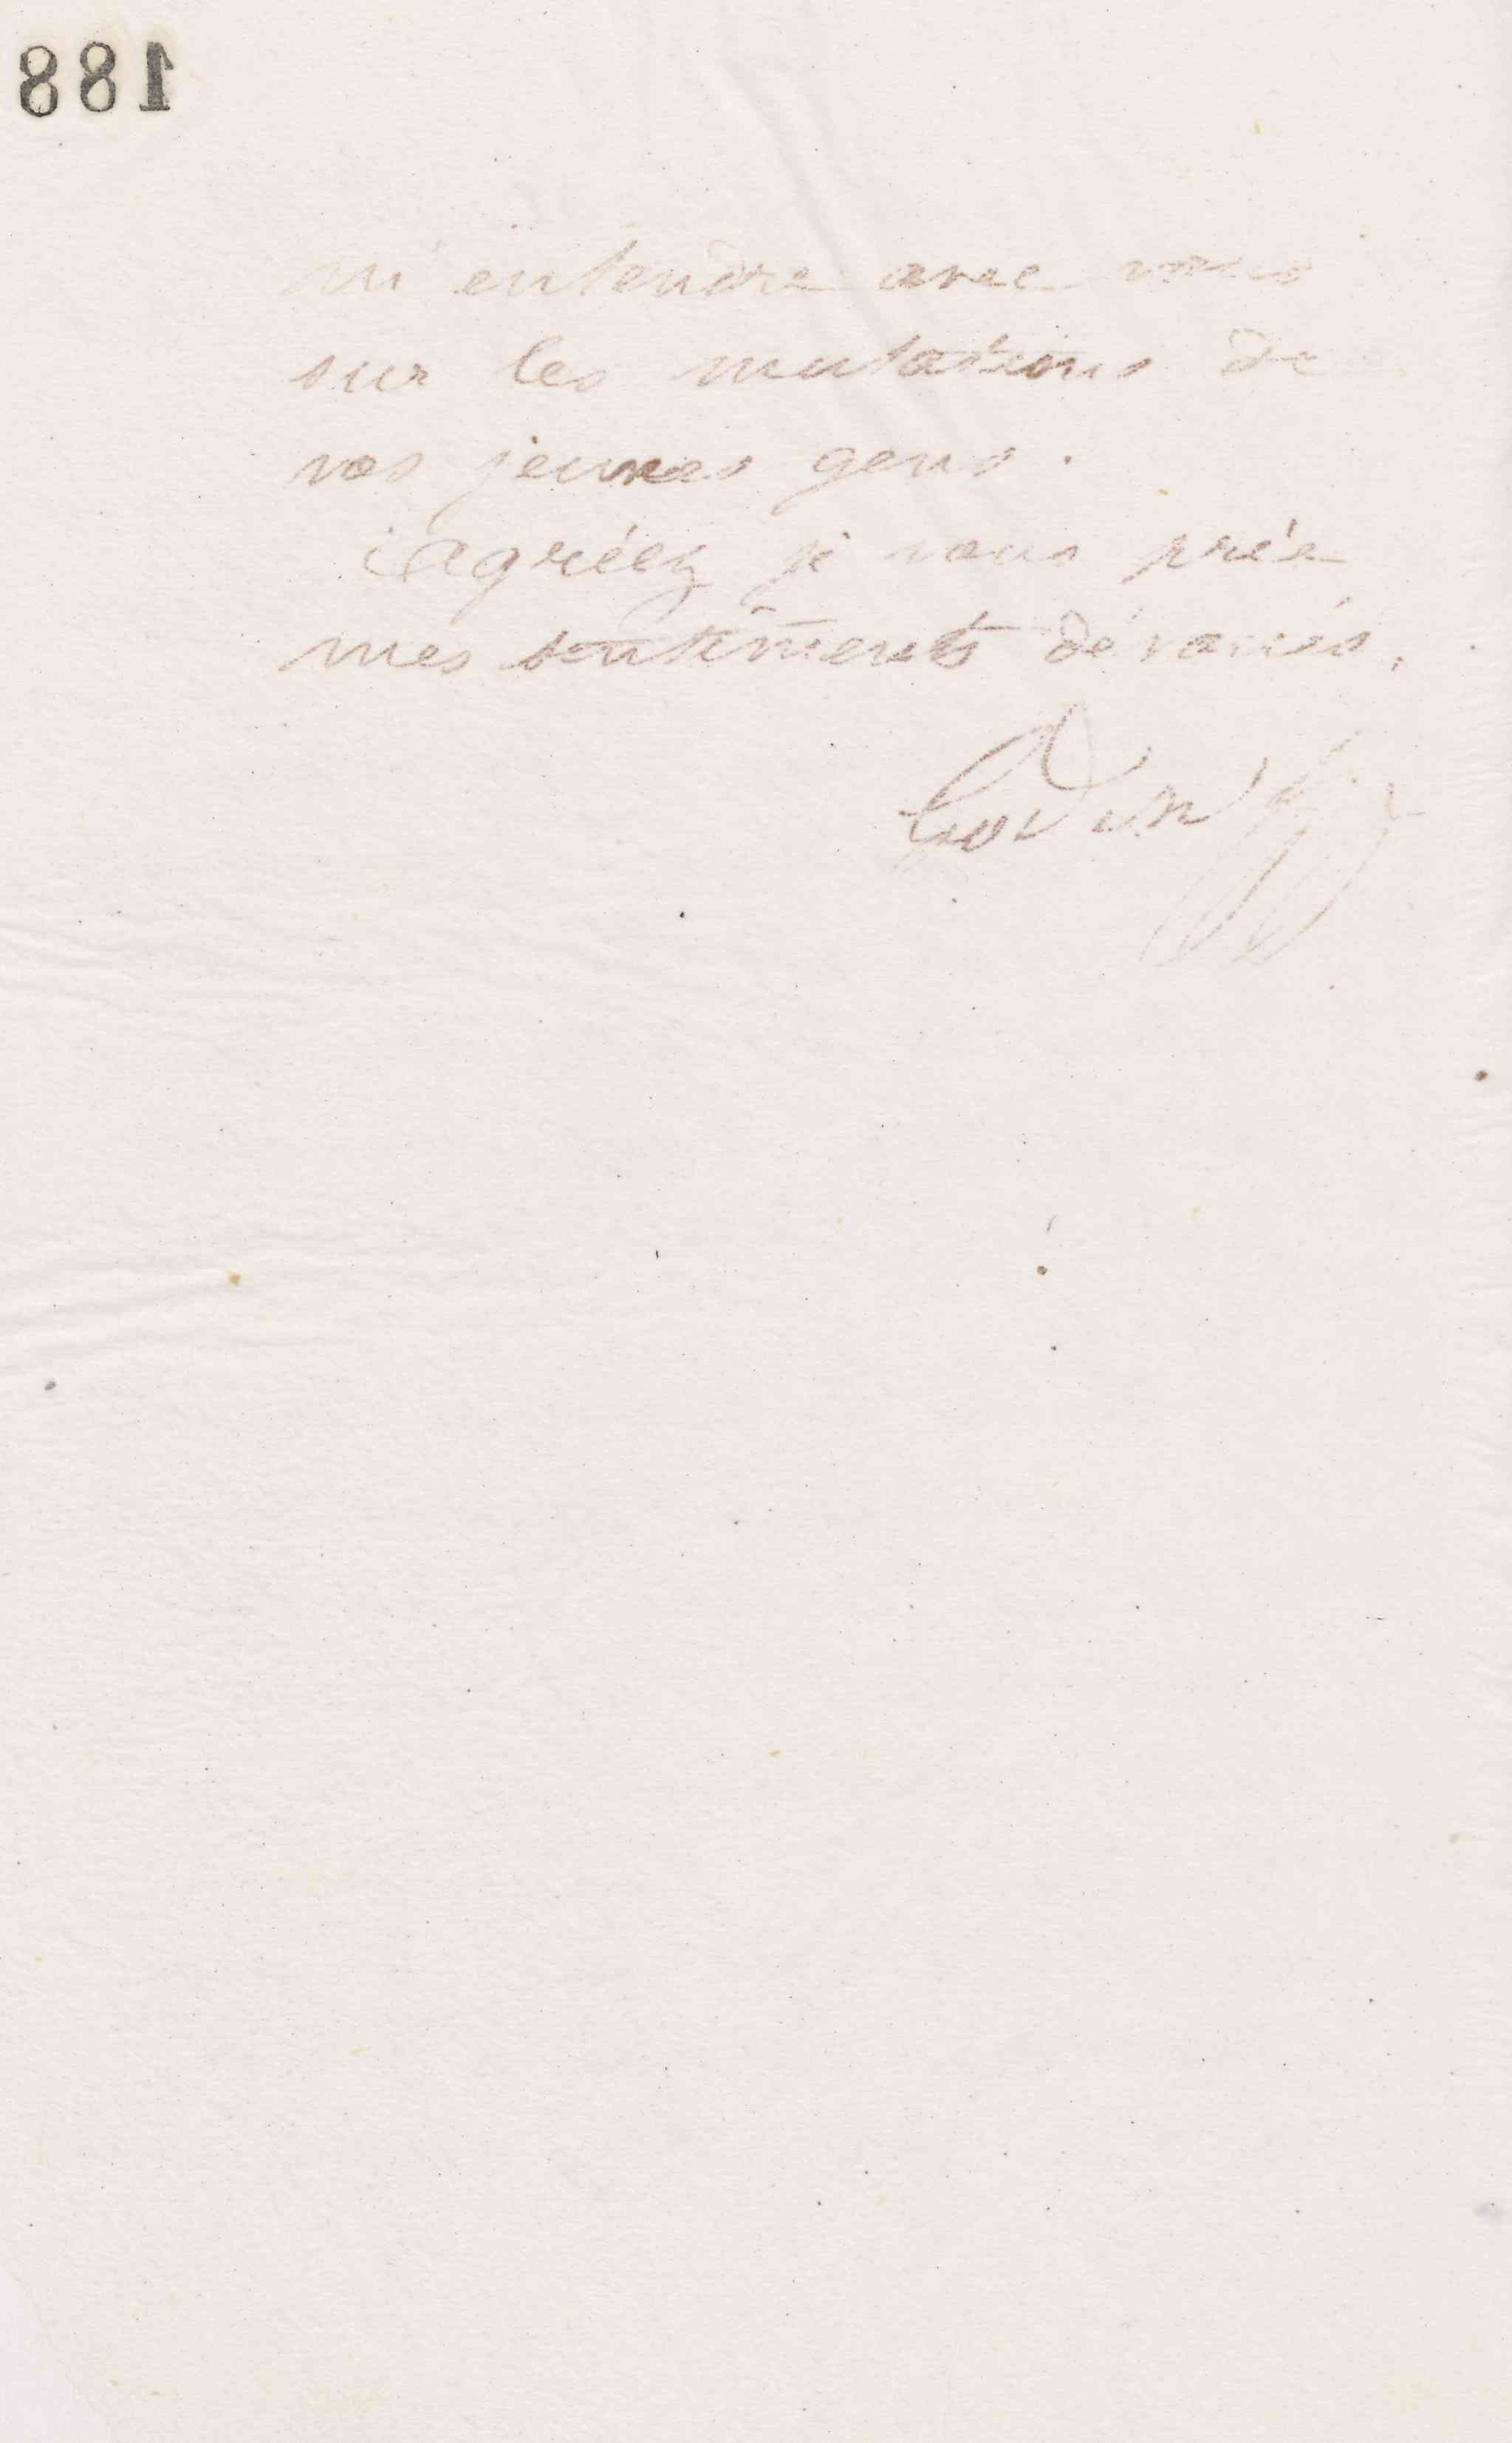 188
m'entendre avec vous
sur les mutations de
vos jeunes gens.
Agréez je vous prie
mes sentiments dévoués.
Godin